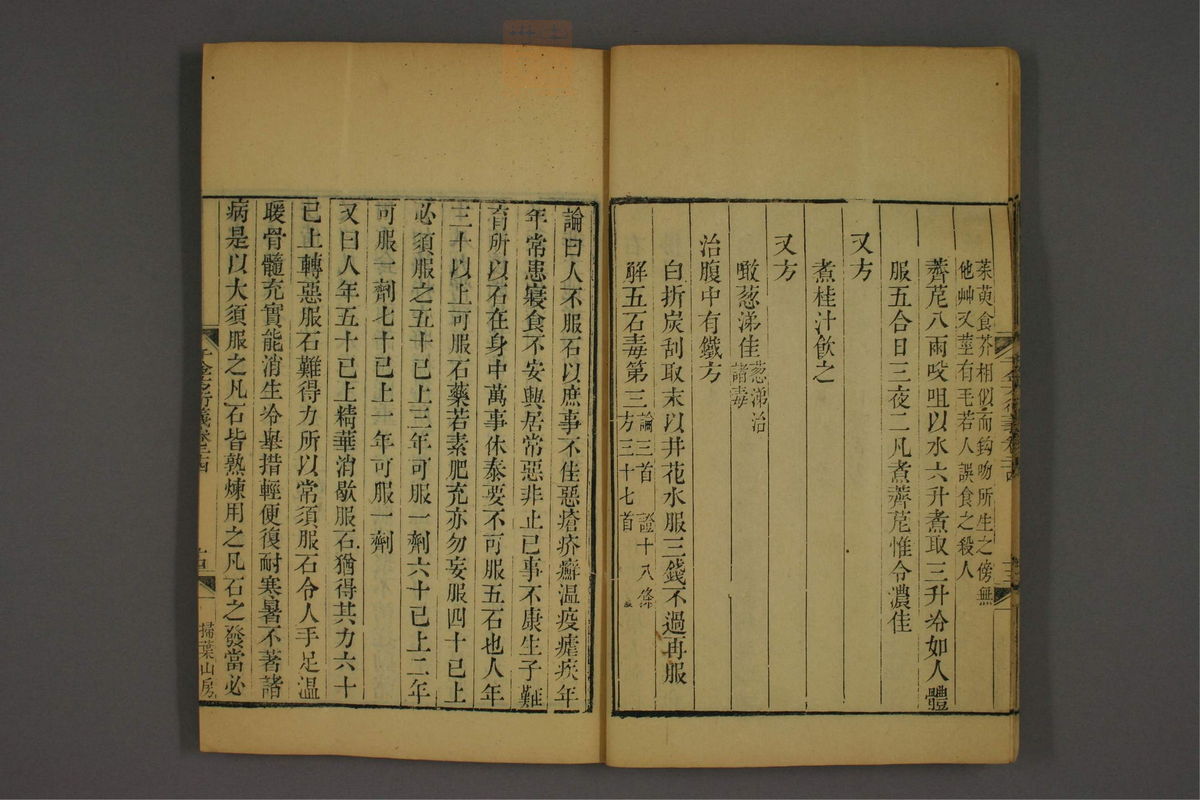 茱萸食芥相似而鈎吻所生之傍無
他艸又莖有毛若人誤食之殺人
薺苨八兩㕮咀以水六升煮取三升冷如人體
服五合日三夜二凡煮薺苨惟令濃佳
又方
煮桂汁飲之
又方
噉葱涕佳葱涕治
諸毒
治腹中有鐵方
白折炭刮取末以井花水服三錢不過再服
解五石毒第三論三首 證十八條
方三十七首
論曰人不服石以庶事不佳惡瘡疥癬溫疫瘧疾年
年常患寢食不安興居常惡非止己事不康生子難
育所以石在身中萬事休泰要不可服五石也人年
三十以上可服石藥若素肥充亦勿妄服四十已上
必須服之五十已上三年可服一劑六十已上二年
可服一劑七十已上一年可服一劑
又曰人年五十已上精華消歇服石猶得其力六十
已上轉惡服石難得力所以常須服石令人手足溫
暖骨髓充實能消生冷舉措輕便復耐寒暑不著諸
病是以大須服之凡石皆熟煉用之凡石之發當必
十四
掃葉山房